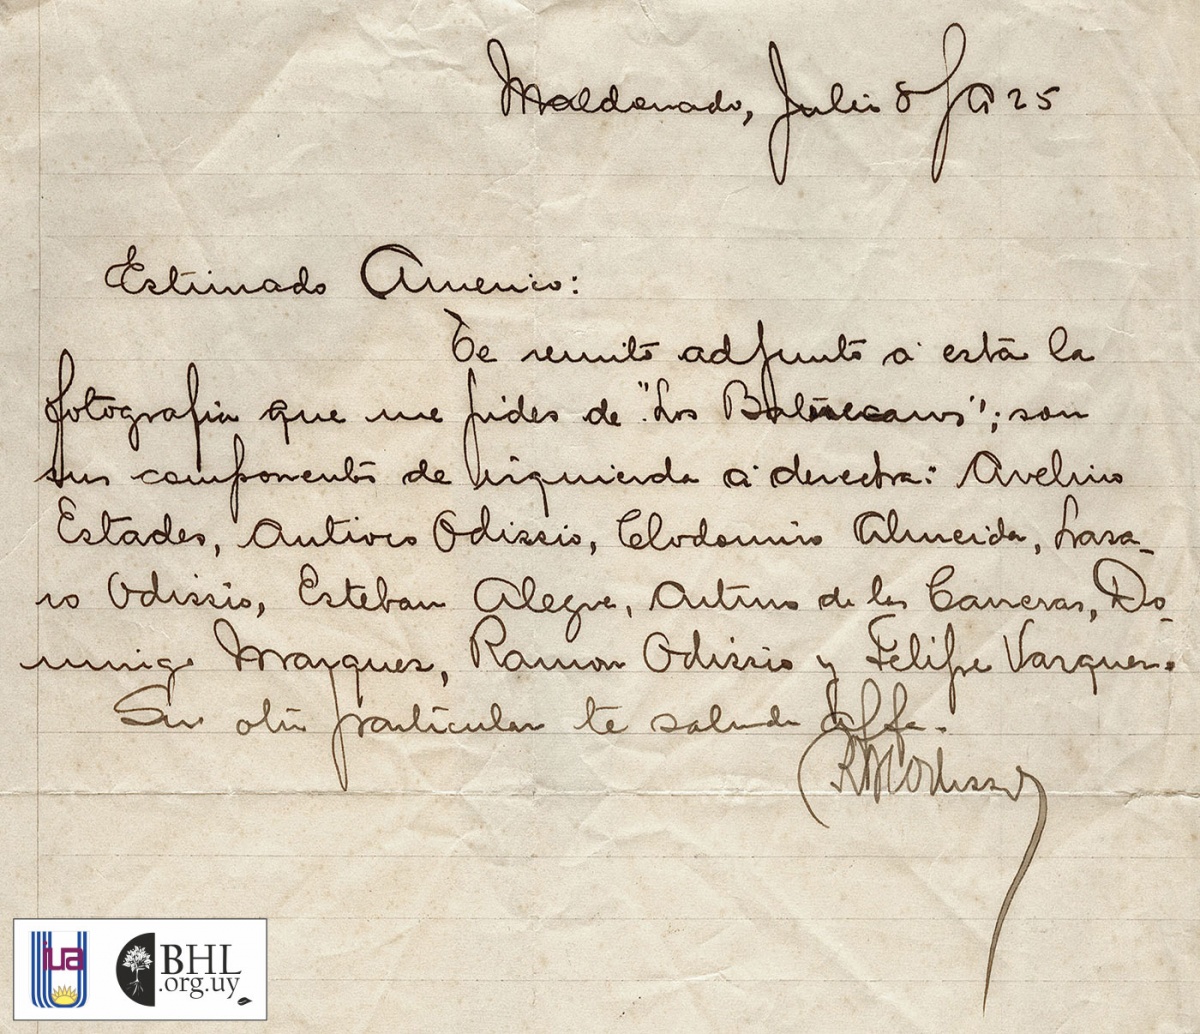 Maldonado, Julio 8/925
Estimado Americo:
Te remito adjunto a esta la
fotografia que me pides de "Los
son
sus componentes de izquierda a derecha: Avelino
Estades, Antioco Odissio, Clodomiro Almeida, Lasa-
ro Odissio, Esteban Alegre, Arturo de las Carreras, Do-
mingo Marquez, Ramon Odissio y Felipe Vazquez.
Sin otro particular te saluda affe.
R M Odissio
iua
BHL
.org.uy